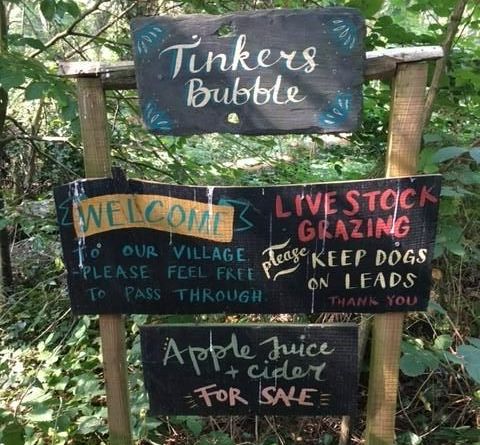 Tinkers
Bubble
WELCOME
TO OUR VILLAGE
PLEASE FEEL FREE
TO PASS THROUGH.
LIVESTOCK
GRAZING
Please KEEP DOGS
ON LEADS
THANK YOU
Apple Juice
+ cider
FOR SALE